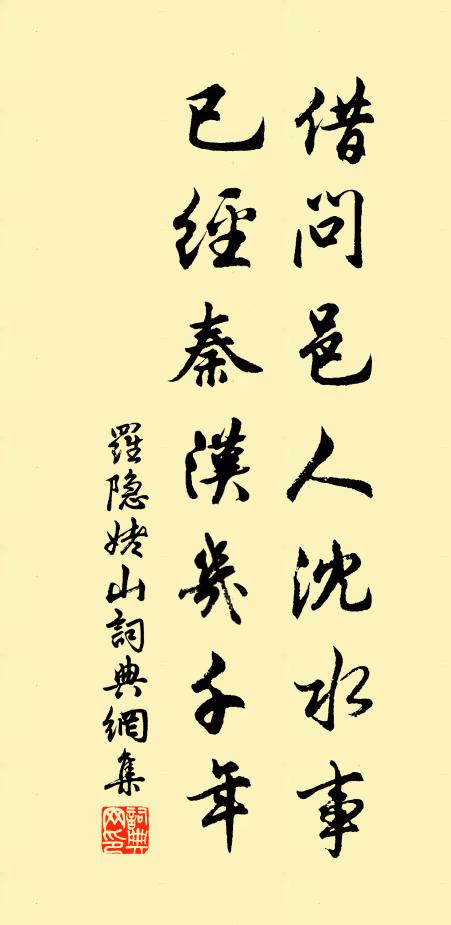 借問邑人沈水事
已經秦漢幾千年
羅隐姥山詞典網集
詞典網印